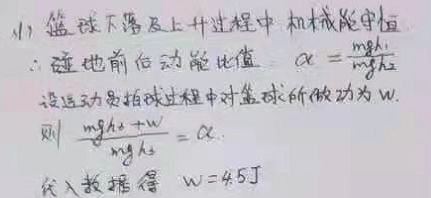 (1) 篮球下落及上升过程中 机械能守恒
∴碰地前后动能比值 α = mgh₁/mgh₂
设运动员拍球过程中对篮球所做功为 W.
则 (mgh₃+W)/mgh₃ = α.
代入数据得 W=4.5J